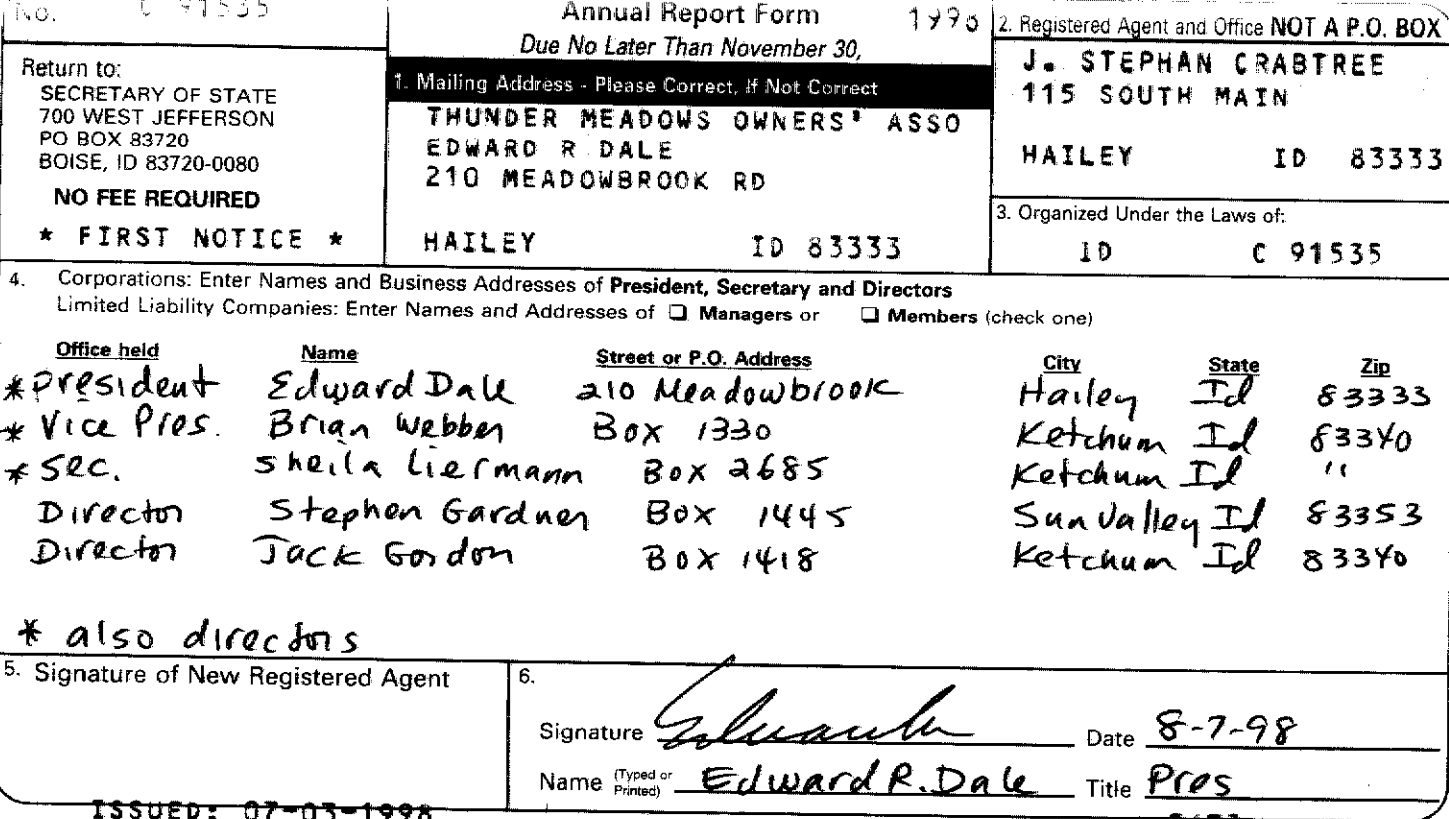 No. C 91535
Annual Report Form 1998
Due No Later Than November 30,
Return to:
SECRETARY OF STATE
700 WEST JEFFERSON
PO BOX 83720
BOISE, ID 83720-0080
NO FEE REQUIRED
* FIRST NOTICE *
1. Mailing Address - Please Correct, If Not Correct
THUNDER MEADOWS OWNERS' ASSO
EDWARD R DALE
210 MEADOWBROOK RD
HAILEY ID 83333
2. Registered Agent and Office NOT A P.O. BOX
J. STEPHAN CRABTREE
115 SOUTH MAIN
HAILEY ID 83333
3. Organized Under the Laws of:
ID C 91535
4. Corporations: Enter Names and Business Addresses of President, Secretary and Directors
Limited Liability Companies: Enter Names and Addresses of ❑ Managers or ❑ Members (check one)
Office held Name Street or P.O. Address City State Zip
* President Edward Dale 210 Meadowbrook Hailey Id 83333
* Vice Pres. Brian Webber Box 1330 Ketchum Id 83340
* Sec. Sheila Liermann Box 2685 Ketchum Id "
Director Stephen Gardner Box 1445 Sun Valley Id 83353
Director Jack Gordon Box 1418 Ketchum Id 83340
* also directors
5. Signature of New Registered Agent
6.
Signature Date 8-7-98
Name (Typed or Printed) Edward R. Dale Title Pres
ISSUED: 07-03-1998